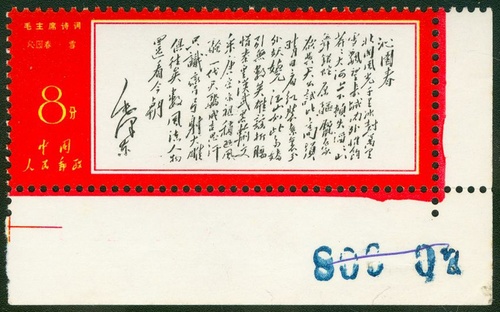 毛主席诗词
沁园春 雪
8分
中国
人民邮政
沁园春
北国风光千里冰封万里
雪飘望长城内外惟馀莽
莽大河上下顿失滔滔山
舞银蛇原驰腊象
欲与天公试比高须
晴日看红装素裹分
外妖娆江山如此多娇
引无数英雄竞折腰
惜秦皇汉武略输文
采唐宗宋祖稍逊风
骚一代天骄成吉思汗
只识弯弓射大雕
俱往矣数风流人物
还看今朝
毛泽东
800